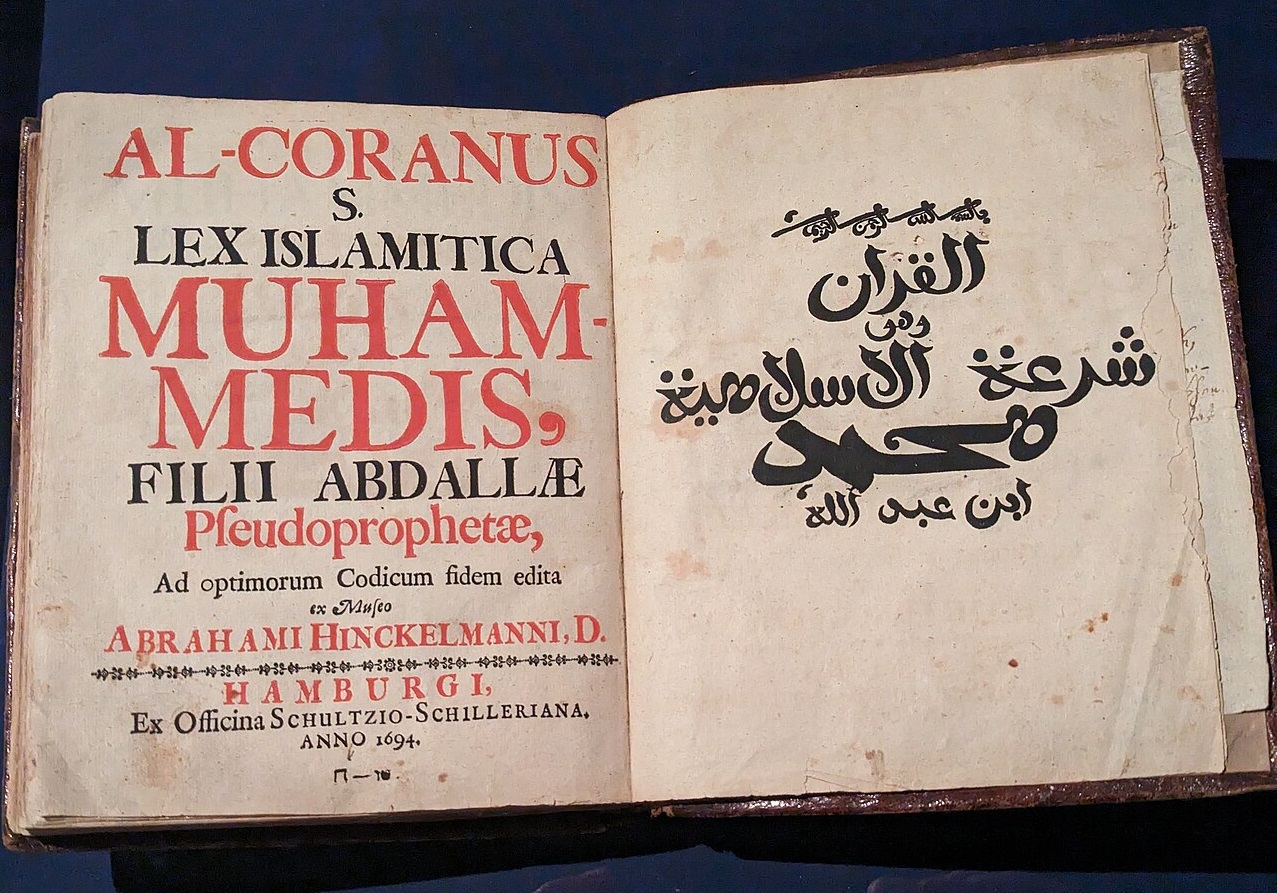 AL-CORANUS
S.
LEX ISLAMITICA
MUHAM-
MEDIS,
FILII ABDALLÆ
Pſeudoprophetæ,
Ad optimorum Codicum fidem edita
ex Muſeo
ABRAHAMI HINCKELMANNI, D.
HAMBURGI,
Ex Officina SCHULTZIO-SCHILLERIANA.
ANNO 1694.
بسم الله الرحمن الرحيم
القران
وهو
شرعة الاسلامية
محمد
ابن عبد الله